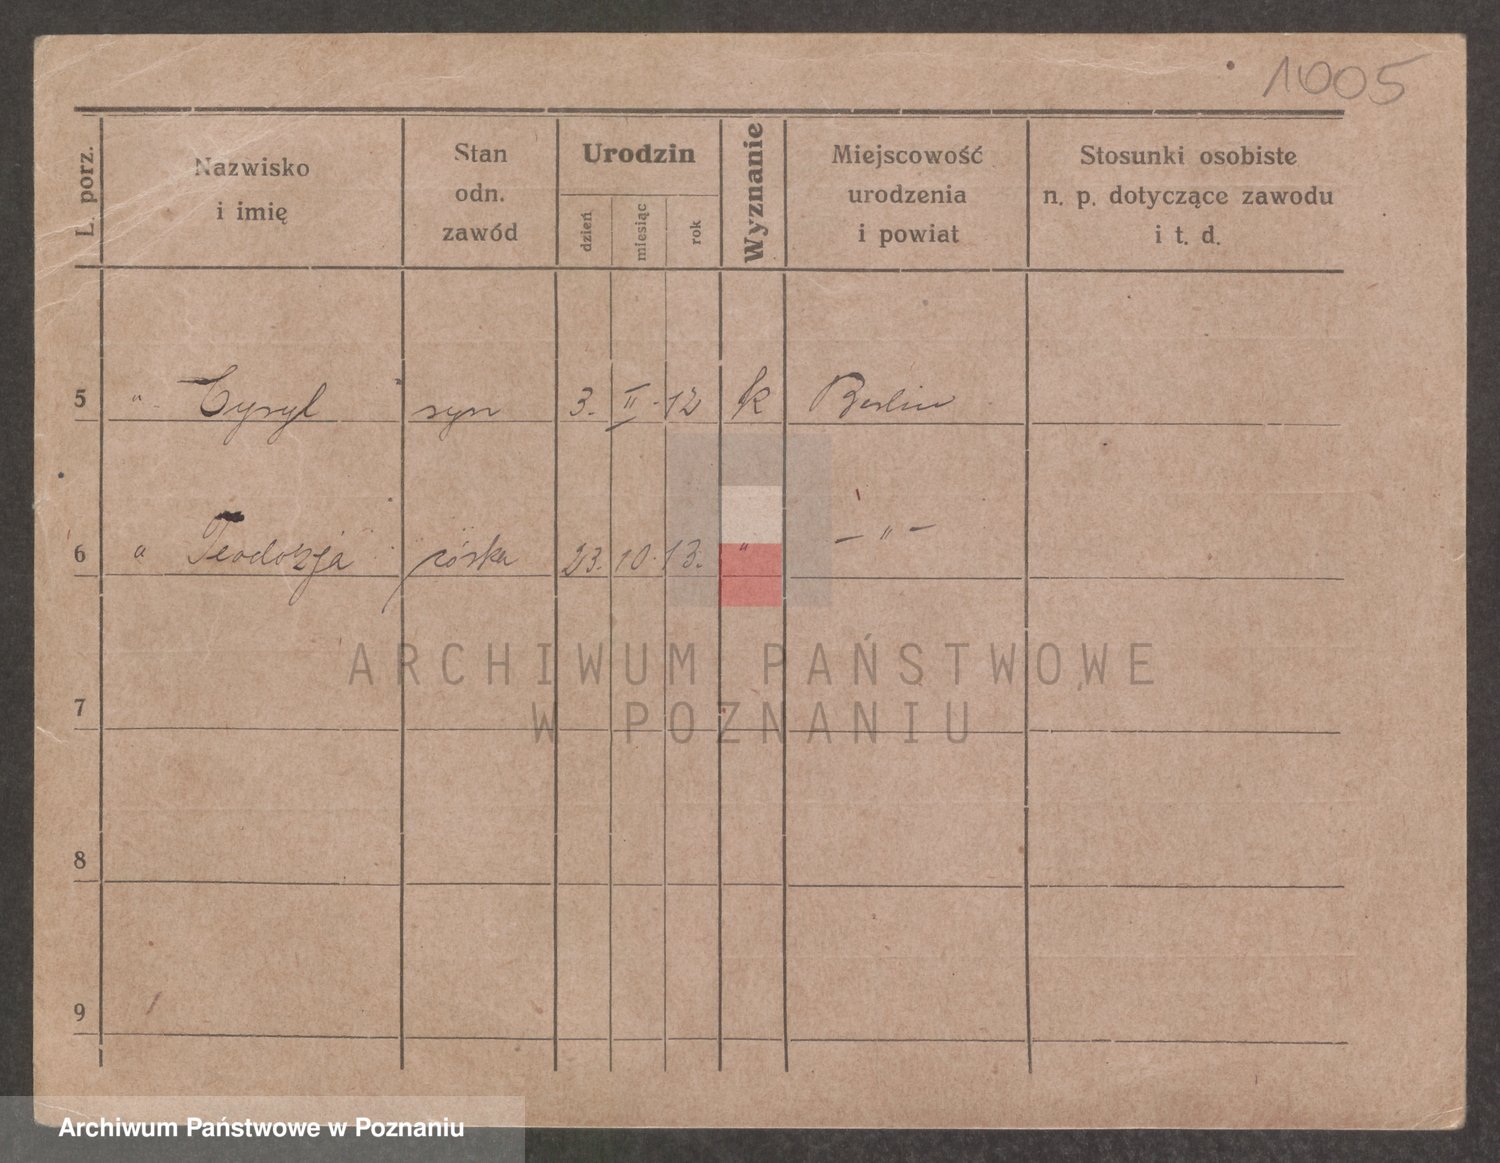 1005
L. porz.
Nazwisko
i imię
Stan
odn.
zawód
Urodzin
dzień
miesiąc
rok
Wyznanie
Miejscowość
urodzenia
i powiat
Stosunki osobiste
n. p. dotyczące zawodu
i t. d.
5 " Cyryl syn 3. II. 12 k Berlin
6 " Teodozja córka 23. 10. 13. " — " —
7
8
9
ARCHIWUM PAŃSTWOWE
W POZNANIU
Archiwum Państwowe w Poznaniu